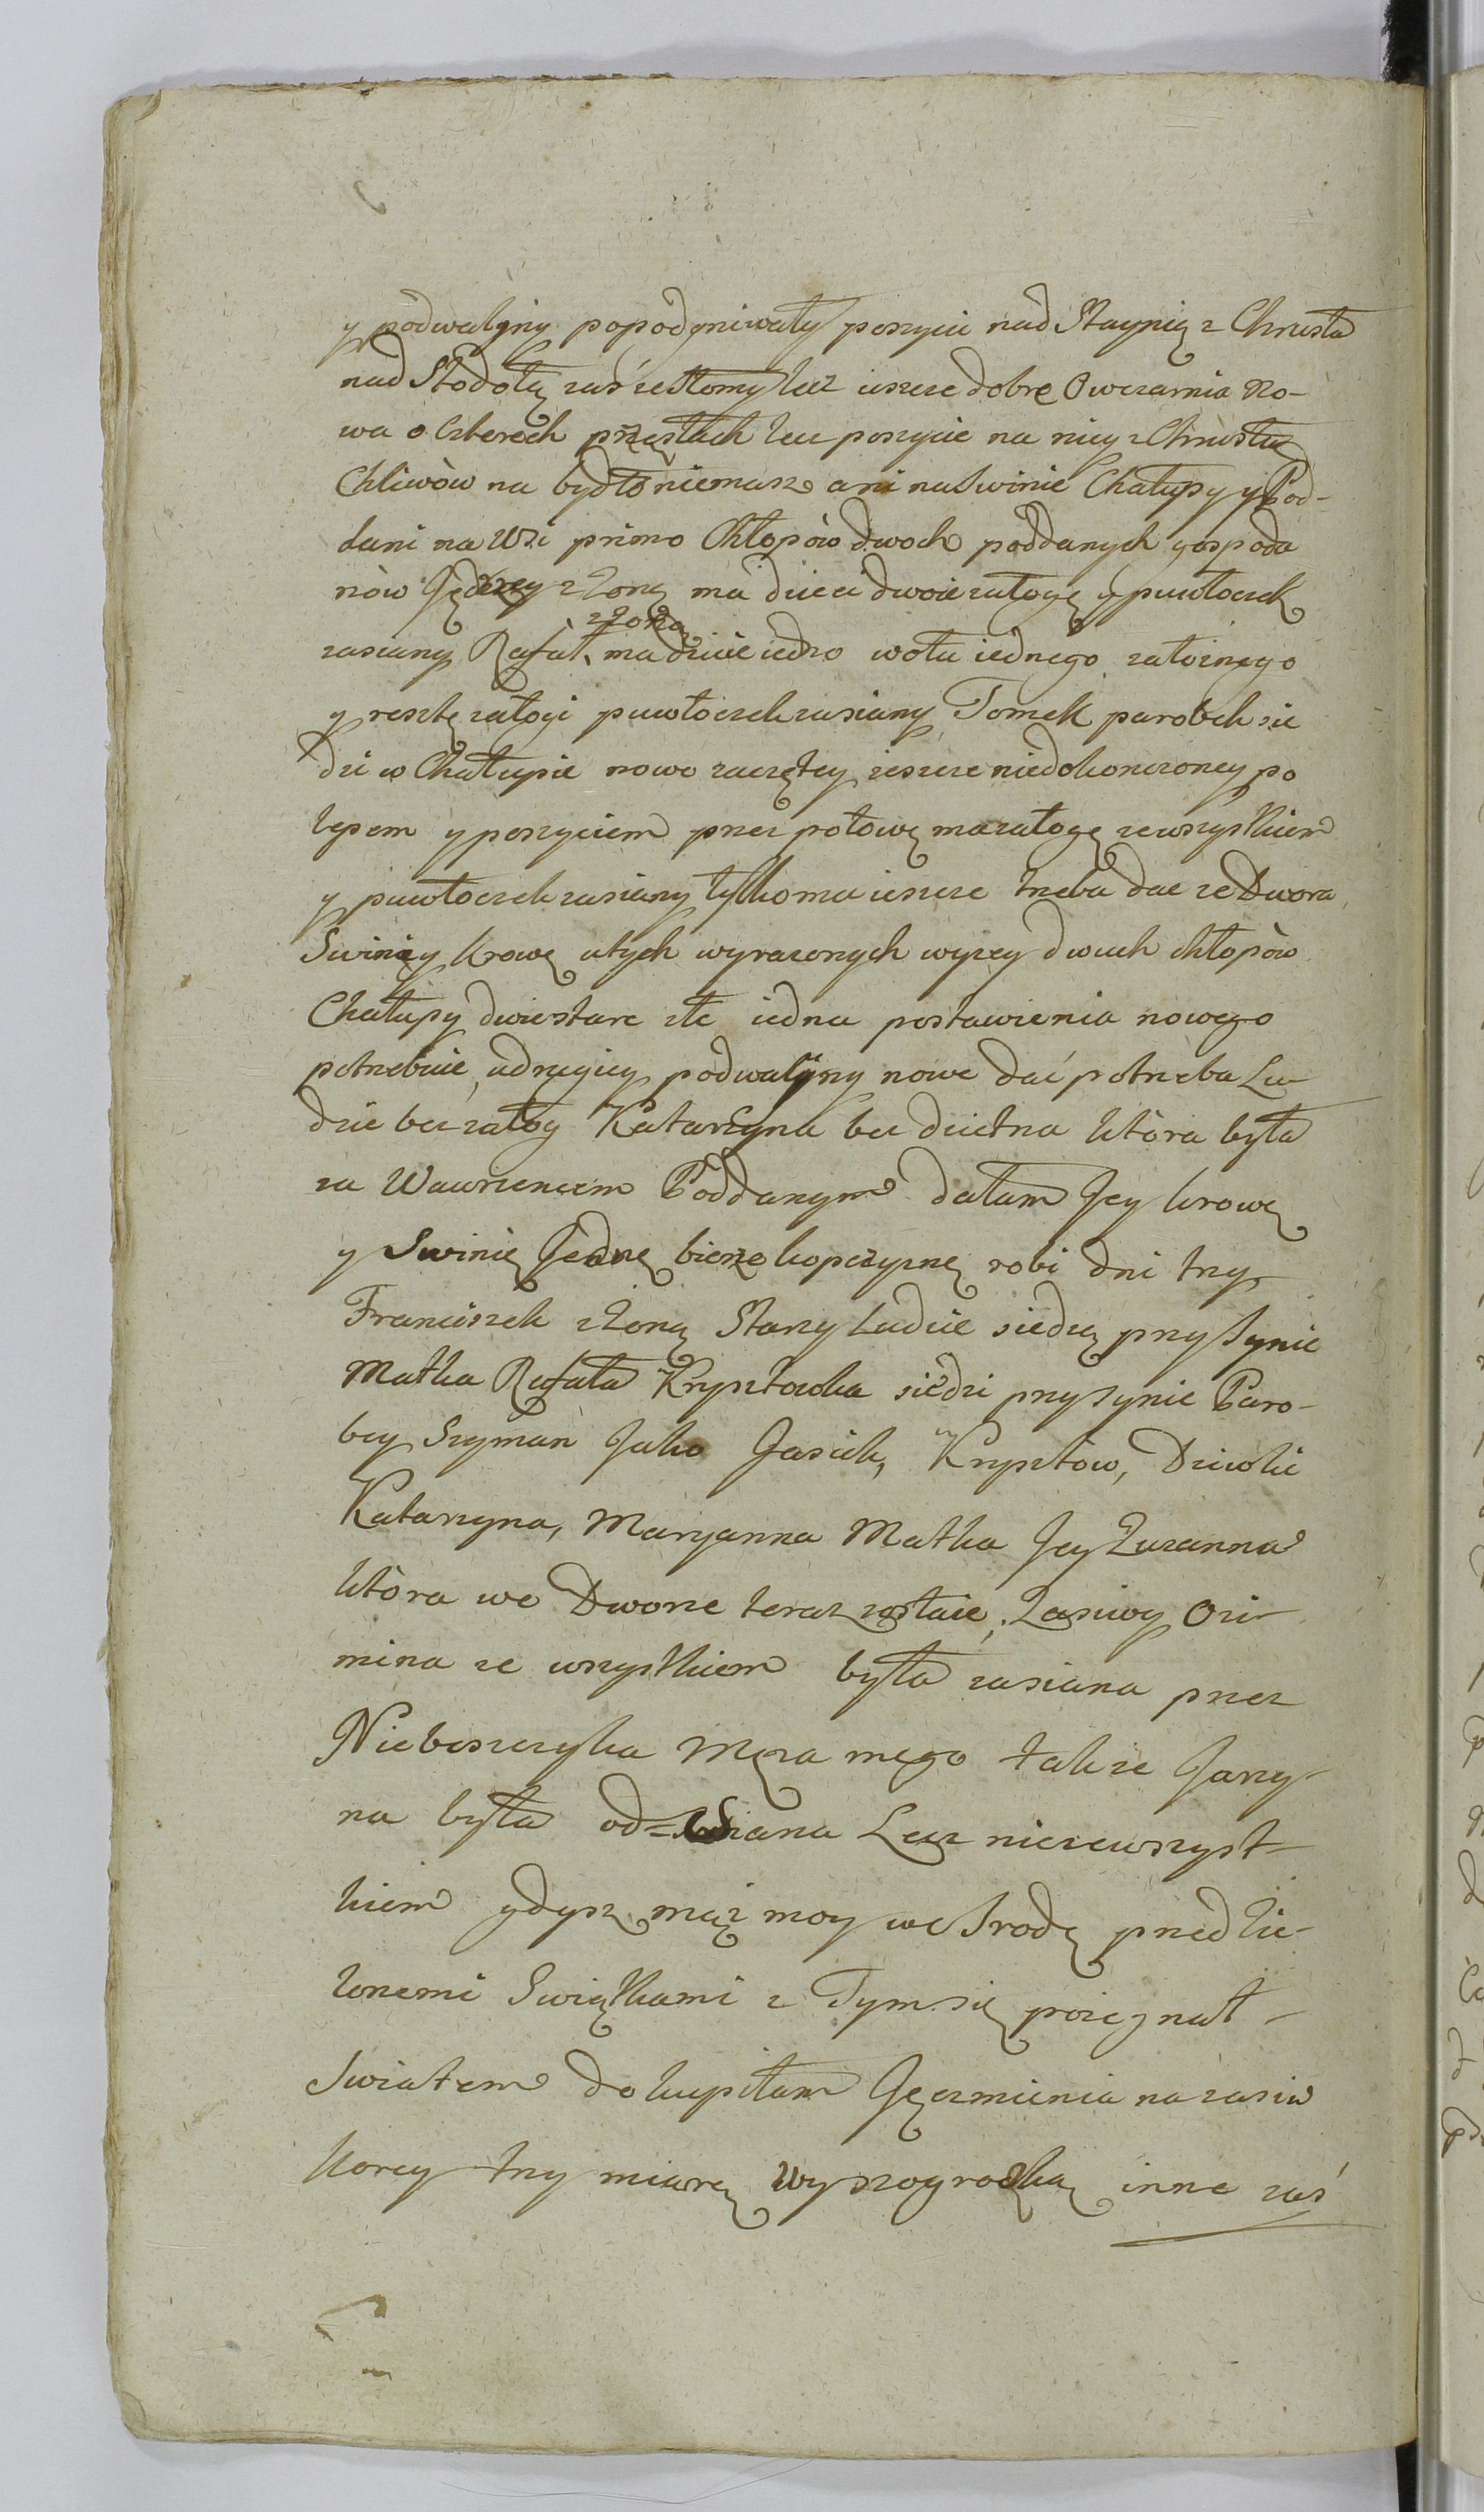 y podwalyny popodgniwały poszycie nad Staynią z Chrusta
nad Stodołą zaś ze Słomy lecz ieszcze dobre Owczarnia no-
wa o Czterech przęsłach lecz poszycie na niey z Chrustu
Chliwòw na bydło niemasz ani na Swinie Chałupy y Pod-
dani na Wsi primo Chłopòw dwoch poddanych gospoda
ròw Jędrzey z Żoną ma dzieci dwoie załogę y puwłoczek
z Żoną
zasiany Rafał ma dziecie iedno wołu iednego załoznego
y resztę załogi puwłoczek zasiany Tomek parobek sie
dzi w Chałupie nowo zaczętey ieszcze niedokonczoney po
lepem y poszyciem przez połowę ma załogę ze wszystkiem
y puwłoczek zasiany tylko ma ieszcze trzeba dac ze Dwora
Swinię y krowę u tych wyrazonych wyzey dwuch chłopòw
Chałupy dwie stare złe iedna postawienia nowego
potrzebuie, u drugiey podwalyny nowe dać potrzeba Lu-
dzie bez załog Katarzyna bez dzietna ktòra była
za Wawrzencem Poddanym dałam Jey krowę
y Swinię Jednę bierze kopczyznę robi dni trzy
Franciszek z Żoną Starzy Ludzie siedzą przy Synie
Matka Rafała Krysztowka siedzi przy synie Paro-
bcy Szyman Jako Jasiek, Krysztow, Dziwki
Katarzyna, Maryanna Matka Jey Zuzanna
ktòra we Dworze teraz zostaie, Zasiwy Ozi-
mina ze wszystkiem była zasiana przez
Nieboszczyka Męza mego takze Jarzy-
na była od= siana Lecz nie ze wszyst-
kiem gdysz mąż moy we Srodę przed Zie-
lonemi Swiątkami z Tym się pożegnał
Swiatem dokupiłam Jęczmienia na zasiw
korcy trzy miarą Wyszogrodzką inne zaś